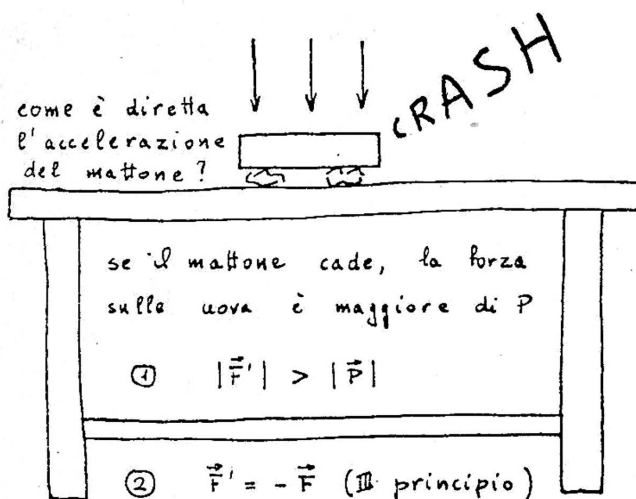 CRASH
come è diretta
l'accelerazione
del mattone?
se il mattone cade, la forza
sulle uova è maggiore di P
① |F⃗'| > |P⃗|
② F⃗' = - F⃗ (III principio)